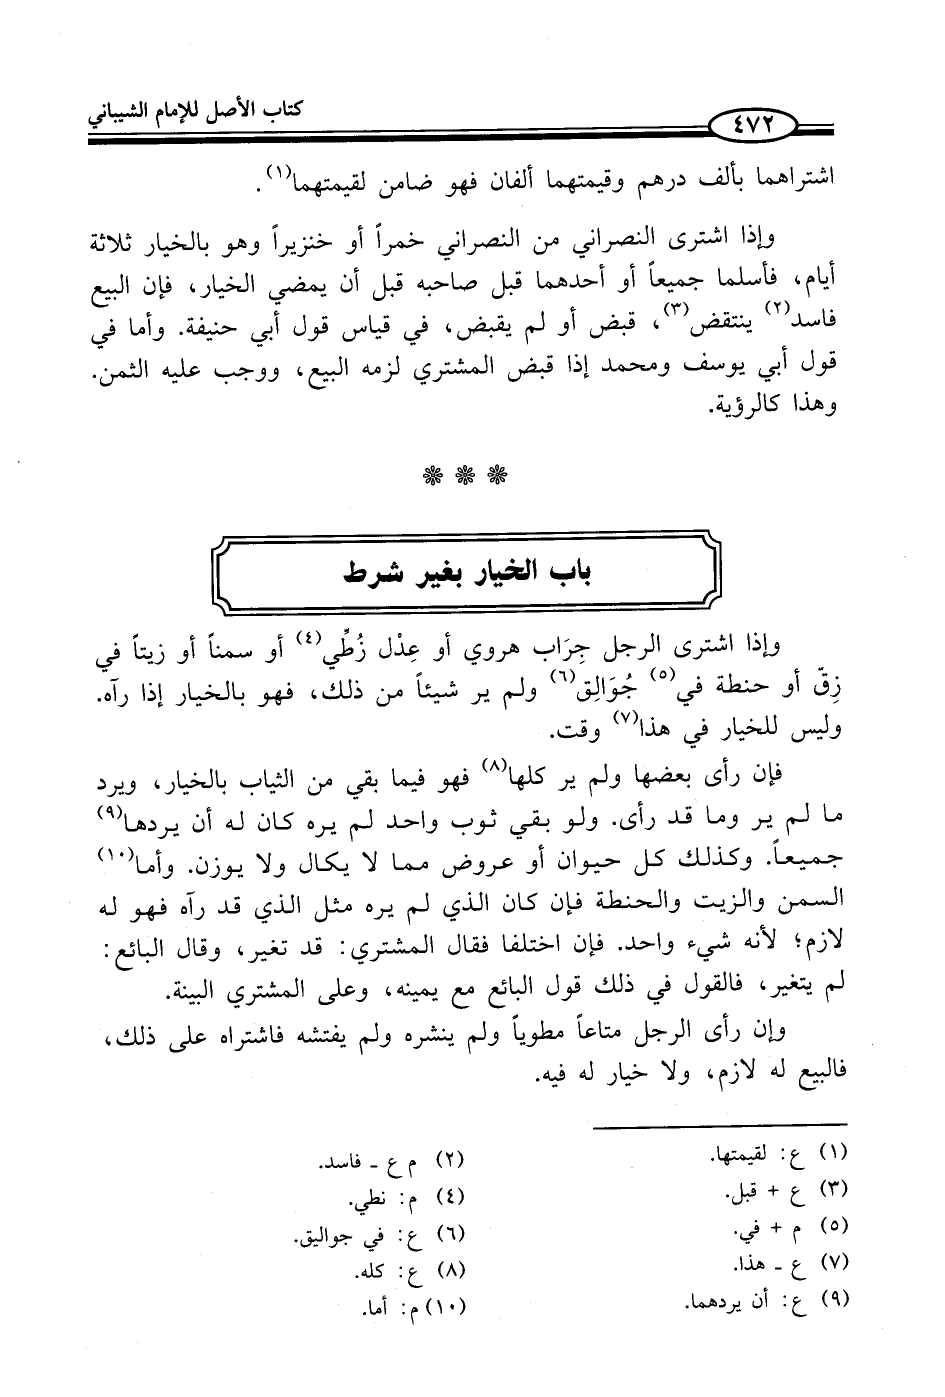 كتاب الأصل للإمام الشيباني
٤٧٢
اشتراهما بألف درهم وقيمتهما ألفان فهو ضامن لقيمتهما(١).
وإذا اشترى النصراني من النصراني خمراً أو خنزيراً وهو بالخيار ثلاثة
أيام، فأسلما جميعاً أو أحدهما قبل صاحبه قبل أن يمضي الخيار، فإن البيع
فاسد(٢) ينتقض(٣)، قبض أو لم يقبض، في قياس قول أبي حنيفة. وأما في
قول أبي يوسف ومحمد إذا قبض المشتري لزمه البيع، ووجب عليه الثمن.
وهذا كالرؤية.
باب الخيار بغير شرط
وإذا اشترى الرجل جِرَاب هروي أو عِدْل زُطِّي(٤) أو سمناً أو زيتاً في
زِقّ أو حنطة في(٥) جُوَالِق(٦) ولم ير شيئاً من ذلك، فهو بالخيار إذا رآه.
وليس للخيار في هذا(٧) وقت.
فإن رأى بعضها ولم ير كلها(٨) فهو فيما بقي من الثياب بالخيار، ويرد
ما لم ير وما قد رأى. ولو بقي ثوب واحد لم يره كان له أن يردها(٩)
جميعاً. وكذلك كل حيوان أو عروض مما لا يكال ولا يوزن. وأما(١٠)
السمن والزيت والحنطة فإن كان الذي لم يره مثل الذي قد رآه فهو له
لازم؛ لأنه شيء واحد. فإن اختلفا فقال المشتري: قد تغير، وقال البائع:
لم يتغير، فالقول في ذلك قول البائع مع يمينه، وعلى المشتري البينة.
وإن رأى الرجل متاعاً مطوياً ولم ينشره ولم يفتشه فاشتراه على ذلك،
فالبيع له لازم، ولا خيار له فيه.
(١) ع: لقيمتها.
(٢) م ع ـ فاسد.
(٣) ع + قبل.
(٤) م: نطي.
(٥) م + في.
(٦) ع: في جواليق.
(٧) ع ـ هذا.
(٨) ع: كله.
(٩) ع: أن يردهما.
(١٠) م: أما.